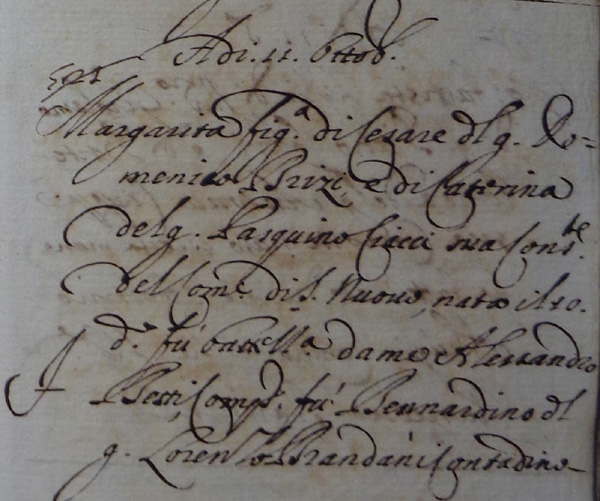 Adi. 11. Ottob.
Margarita fig.a di Cesare dl q. Do=
menico Brizi, e di Caterina
del q. Pasquino Ciacci sua Cons.te
del Com.e di S. Nuovo, nata il 10.
d.o fù battez.a da me Alessandro
Betti, Comp.e fù Bernardino dl
q. Loren.zo Brandani Contadino